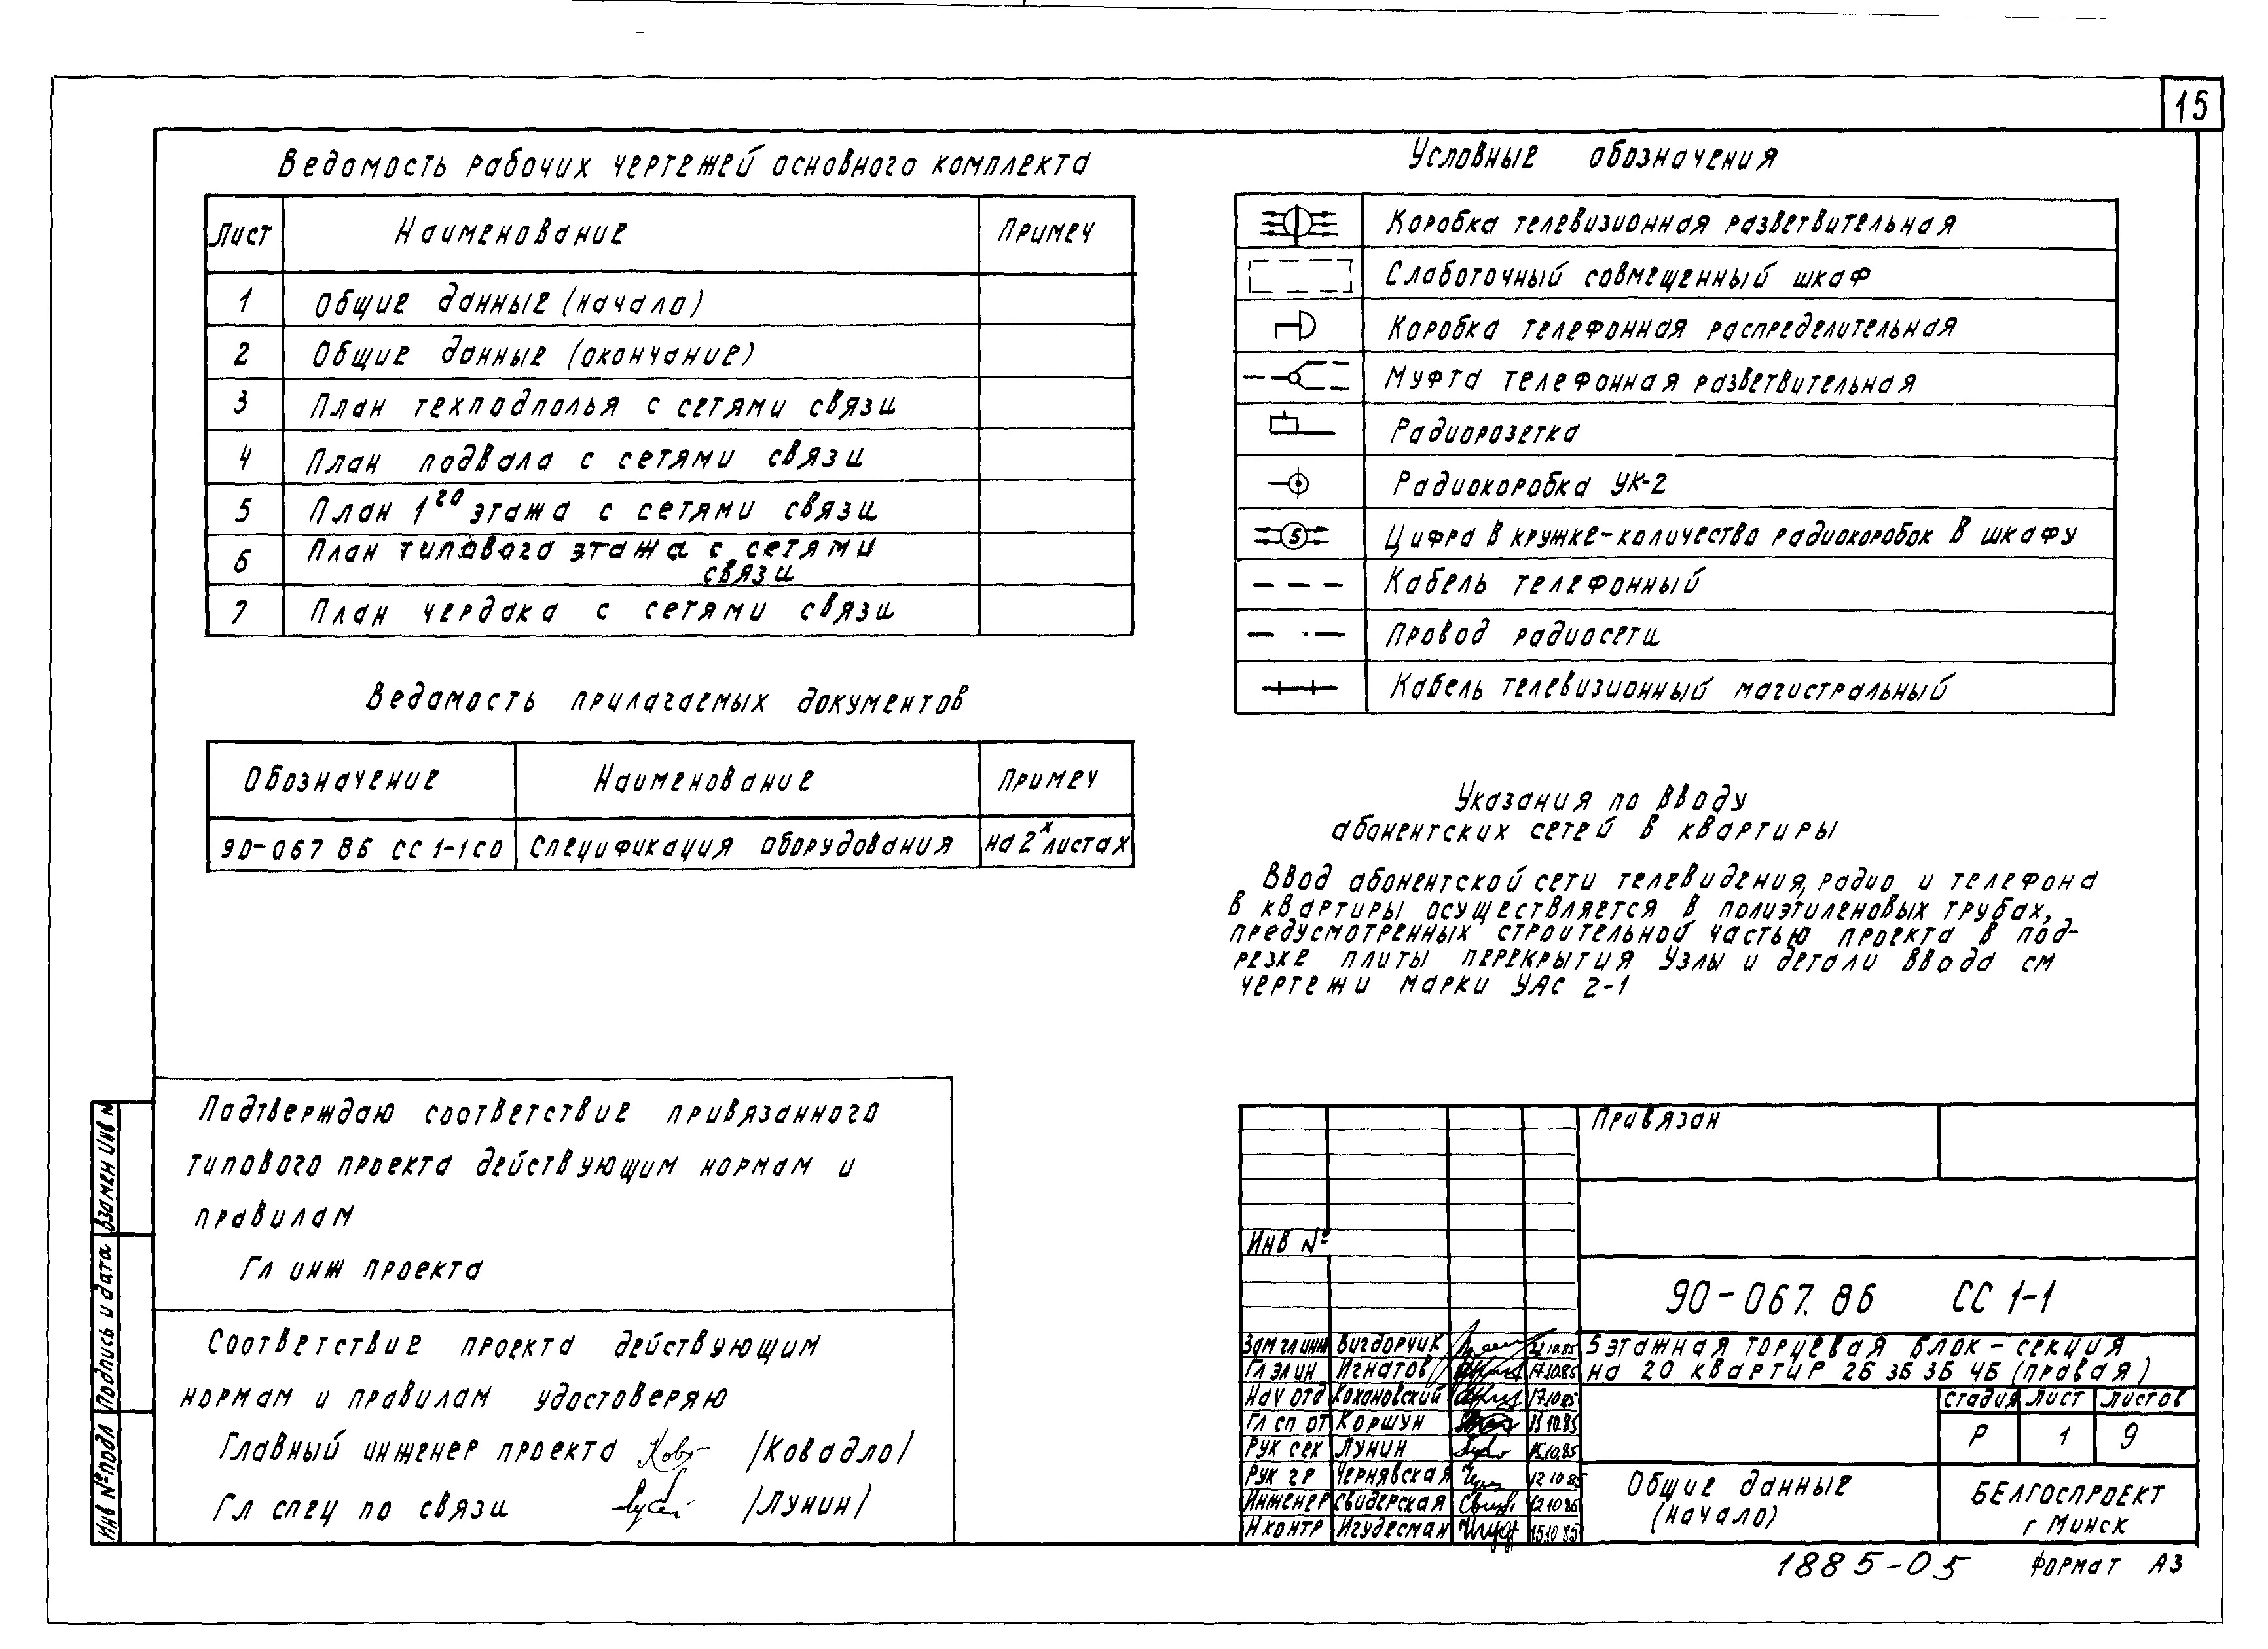 15
Ведомость рабочих чертежей основного комплекта
Лист Наименование Примеч
1 Общие данные (начало)
2 Общие данные (окончание)
3 План техподполья с сетями связи
4 План подвала с сетями связи
5 План 1го этажа с сетями связи
6 План типового этажа с сетями
связи
7 План чердака с сетями связи
Ведомость прилагаемых документов
Обозначение Наименование Примеч
90-067 86 СС 1-1 СО Спецификация оборудования на 2х листах
Условные обозначения
Коробка телевизионная разветвительная
Слаботочный совмещенный шкаф
Коробка телефонная распределительная
Муфта телефонная разветвительная
Радиорозетка
Радиокоробка УК-2
5 Цифра в кружке-количество радиокоробок в шкафу
Кабель телефонный
Провод радиосети
Кабель телевизионный магистральный
Указания по вводу
абонентских сетей в квартиры
Ввод абонентской сети телевидения, радио и телефона
в квартиры осуществляется в полиэтиленовых трубах,
предусмотренных строительной частью проекта в под-
резке плиты перекрытия Узлы и детали ввода см
чертежи марки УАС 2-1
Подтверждаю соответствие привязанного
типового проекта действующим нормам и
правилам
Гл инж проекта
Соответствие проекта действующим
нормам и правилам удостоверяю
Главный инженер проекта /Ковадло/
Гл спец по связи /Лунин/
Взамен инв №
Подпись и дата
Инв № подл
Привязан
Инв №
90-067.86 СС 1-1
Зам гл инж Вигдорчик 10.85
Гл эл ин Игнатов 17.10.85
Нач отд Кохановский 17.10.85
Гл сп от Коршун 15 10.85
Рук сек Лунин 15.10.85
Рук гр Чернявская 12 10 85
Инженер Свидерская 12 10 85
Н контр Игудесман 15.10 85
5 этажная торцевая блок-секция
на 20 квартир 2Б 3Б 3Б 4Б (правая)
Стадия Лист Листов
Р 1 9
Общие данные
(начало)
БЕЛГОСПРОЕКТ
г Минск
1885-05 Формат А3